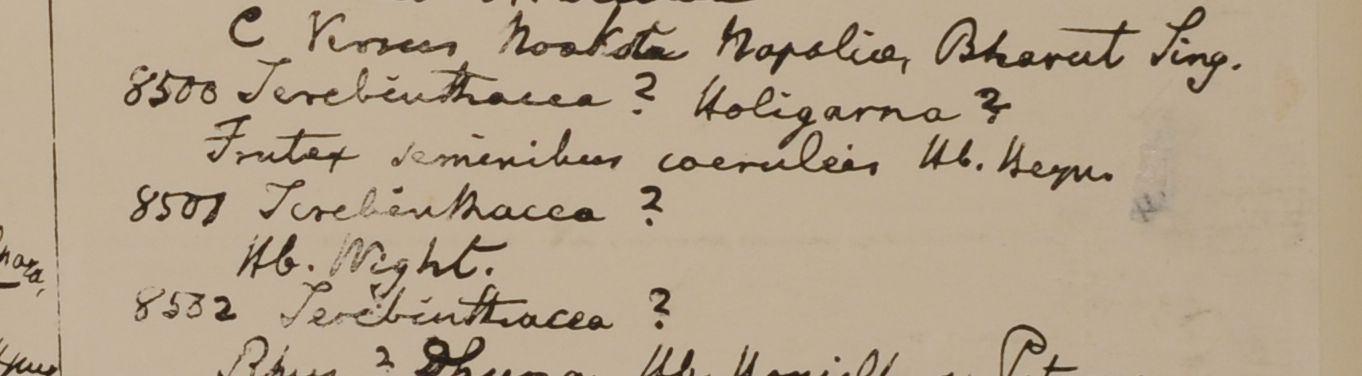 C Versus Noakota Napaliæ, Bharut Sing.
8500 Terebinthacea ? Holigarna ?
Frutex seminibus coeruleis Hb. Heyn.
8501 Terebinthacea ?
Hb. Wight.
8502 Terebinthacea ?
Rhus ? Dhuna Hb.